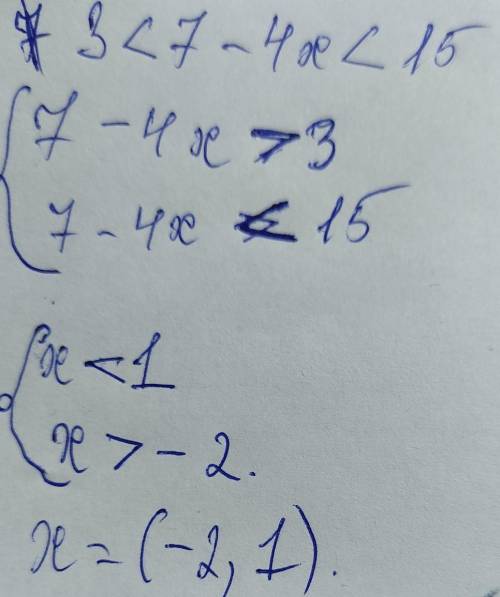 3 < 7 - 4x < 15
7 - 4x > 3
7 - 4x < 15
x < 1
x > - 2.
x = (-2, 1).